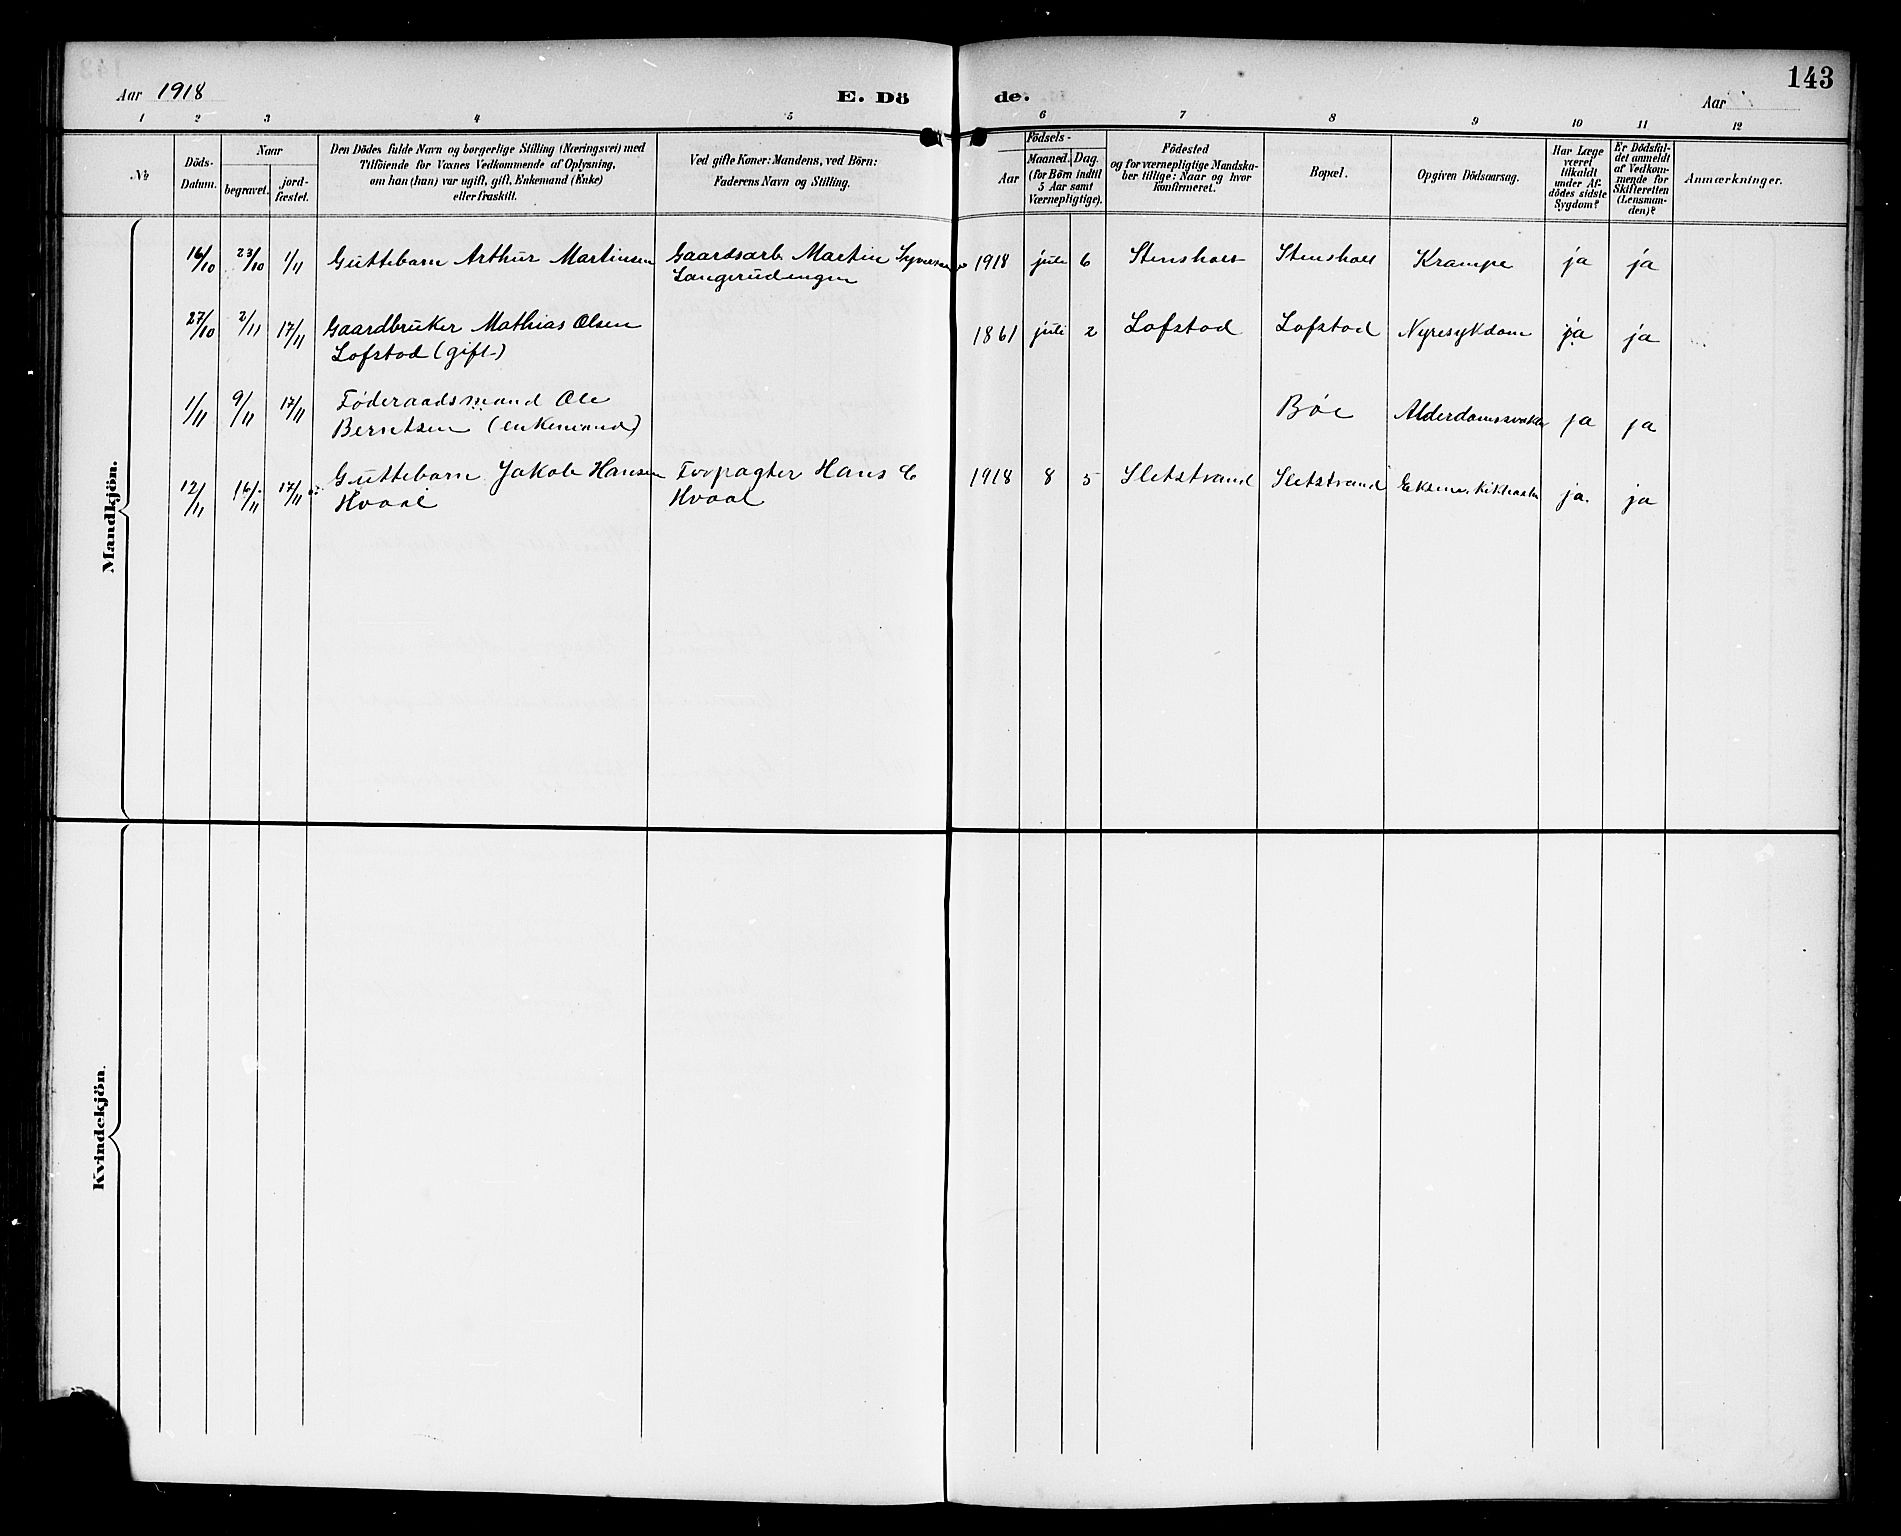 143
Aar 1918
E. Dö
de.
Aar
1 2 3 4 5 6 7 8 9 10 11 12
No
Döds-
Datum.
Naar
begravet.
jord-
fæstet.
Den Dödes fulde Navn og borgerlige Stilling (Næringsvei) med
Tilföiende for Voxnes Vedkommende af Oplysning,
om han (hun) var ugift, gift, Enkemand (Enke)
eller fraskilt.
Ved gifte Koner: Mandens, ved Börn:
Faderens Navn og Stilling.
Aar
Födsels-
Maaned. Dag.
(for Börn indtil
5 Aar samt
Værnepligtige).
Födested
og for værnepligtige Mandska-
ber tillige: Naar og hvor
konfirmeret.
Bopæl.
Opgiven Dödsaarsag.
Har Læge
været
tilkaldt
under Af-
dödes sidste
Sygdom?
Er Dödsfal-
det anmeldt
af Vedkom-
mende for
Skifteretten
(Lensman-
den)?
Anmærkninger.
Mandkjön.
16/10 23/10 1/11 Guttebarn Arthur Martinsen Gaardsarb. Martin 1918 juli 6 Stensholt Stensholt Krampe ja ja
Langerudengen
27/10 2/11 17/11 Gaardbruker Mathias Olsen 1861 juli 2 Lofstad Lofstad Nyresykdom ja ja
Lofstad (gift)
1/11 9/11 17/11 Føderaadsmand Ole Bøe ja ja
Berntsen (enkemand)
12/11 16/11 17/11 Guttebarn Jakob Hansen Forpagter Hans 1918 8 5 Sletstrand Sletstrand ja. ja
Hvaal Hvaal
Kvindekjön.